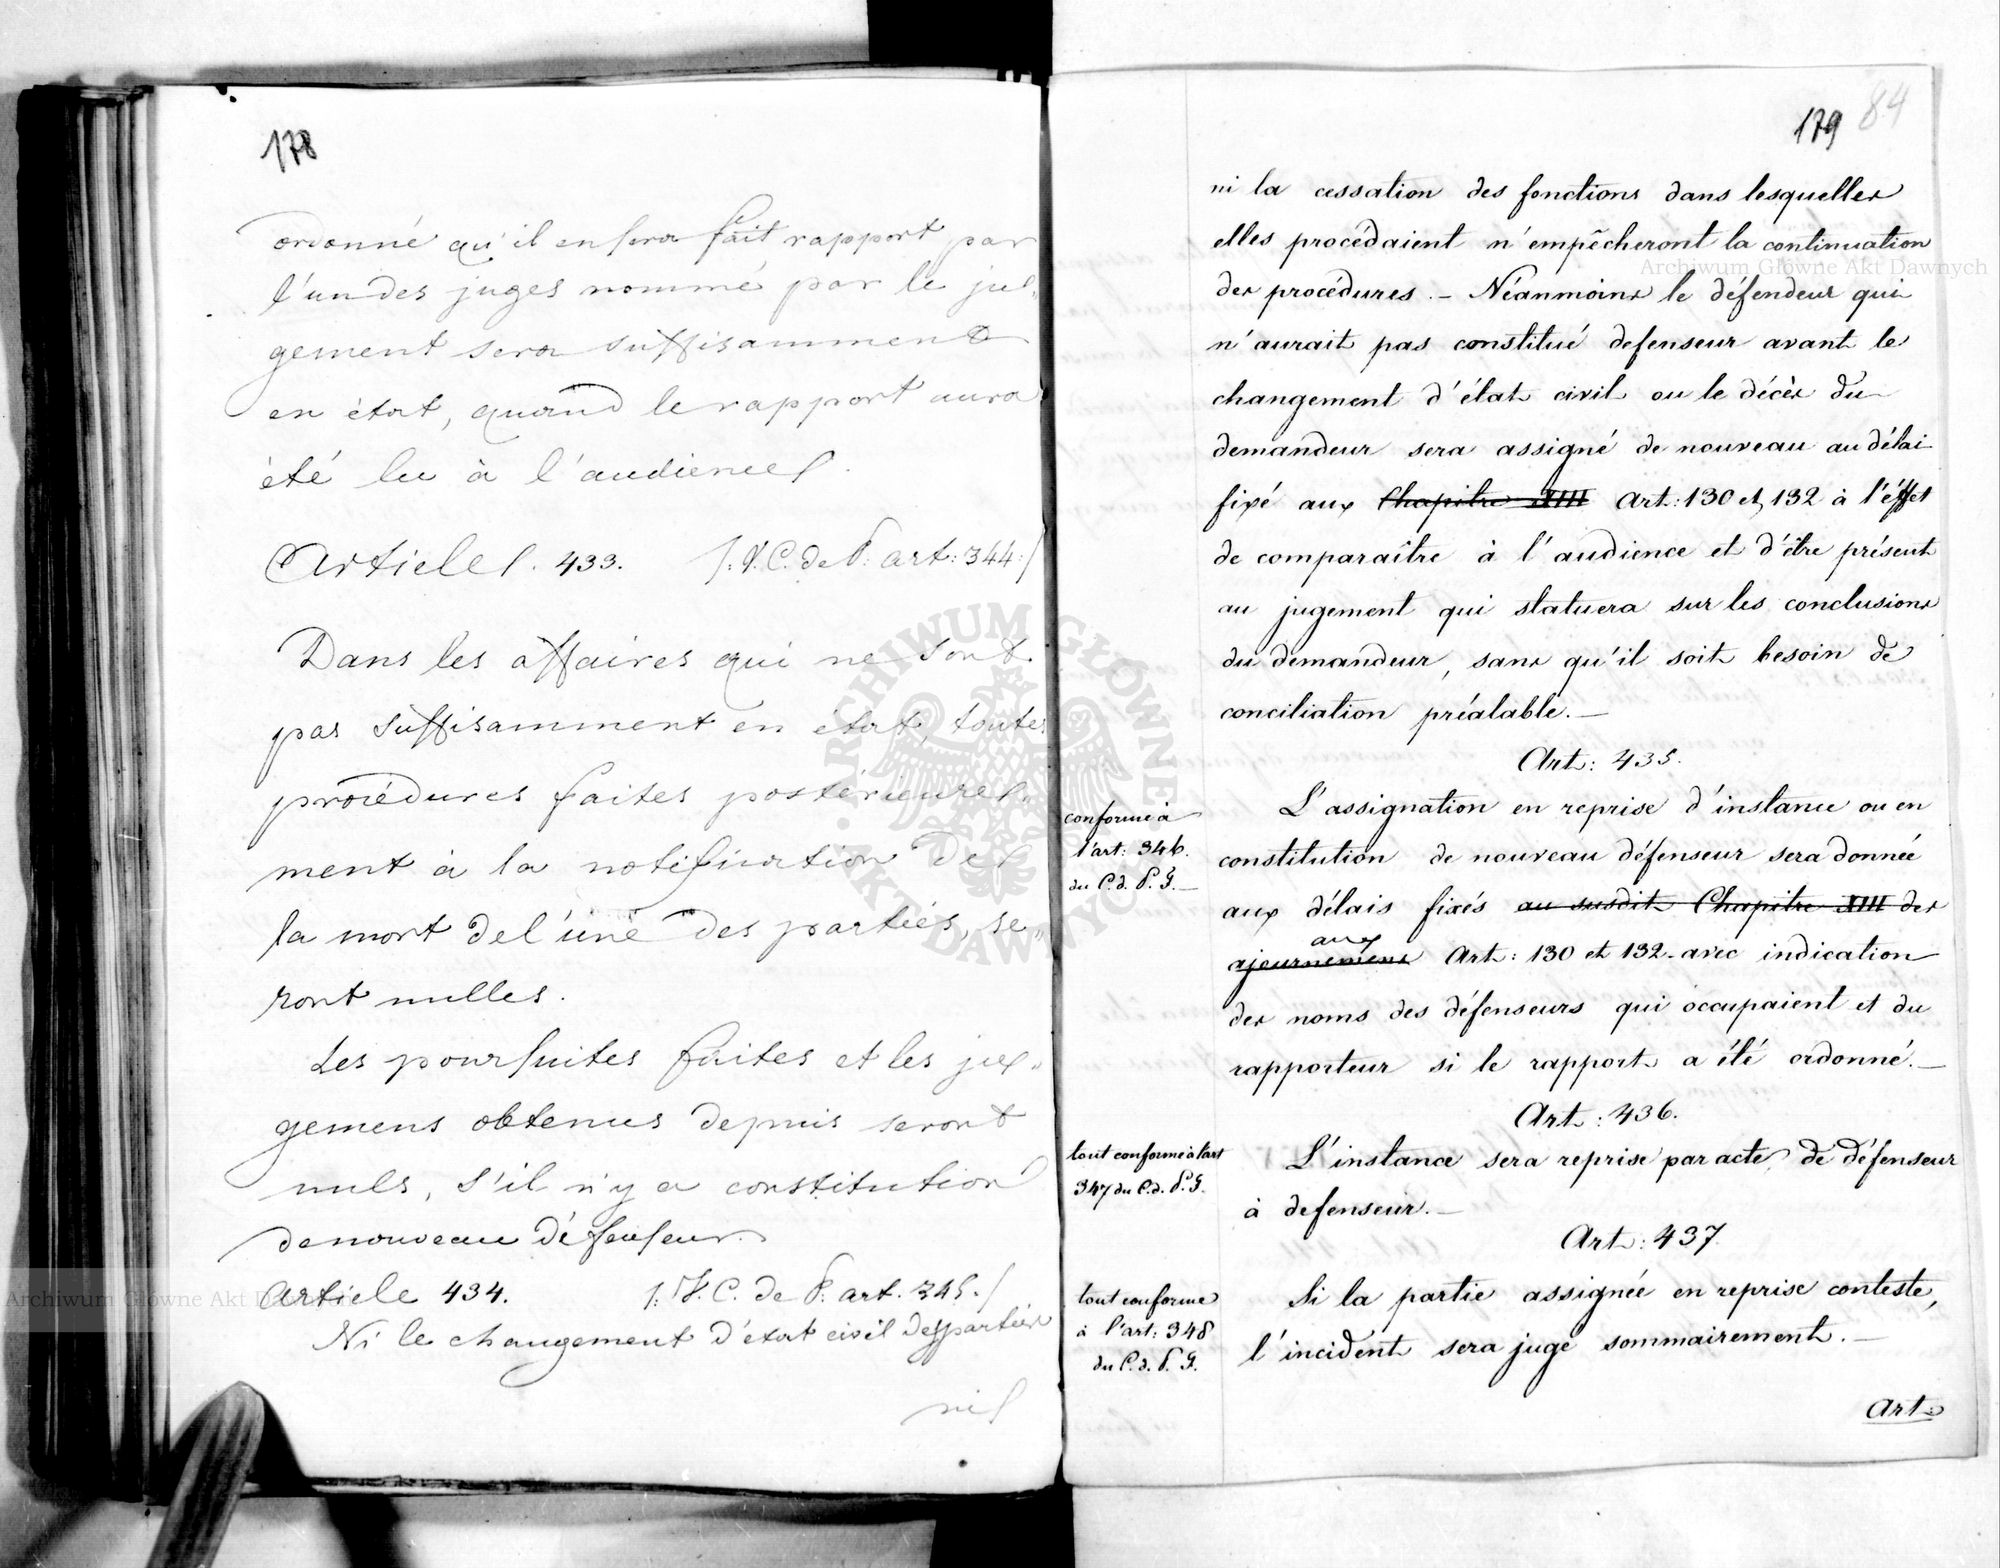 178
ordonné qu'il en sera fait rapport par
l'un des juges nommé par le ju-
gement sera suffisamment
en état, quand le rapport aura
été lu à l'audience.
Article. 433. /: V. C. de P. art: 344 :/
Dans les affaires qui ne sont
pas suffisamment en état, toutes
procédures faites postérieure-
ment à la notification de
la mort de l'une des parties, se-
ront nulles.
Les poursuites faites et les ju-
gemens obtenus depuis seront
nuls, s'il n'y a constitution
de nouveau défenseur.
Article 434. /: V. C. de P. art. 345. /
Ni le changement d'état civil des parties
ni
179 84
ni la cessation des fonctions dans lesquelles
elles procédaient n'empêcheront la continuation
des procédures. – Néanmoins le défendeur qui
n'aurait pas constitué defenseur avant le
changement d'état civil ou le décès du
demandeur sera assigné de nouveau au délai
fixé aux Chapitre XIII Art: 130 et 132 à l'éffet
de comparaître à l'audience et d'être présent
au jugement qui statuera sur les conclusions
du demandeur, sans qu'il soit besoin de
conciliation préalable. –
Art: 435.
conforme à
l'art: 346.
du C. d. P. G. –
L'assignation en reprise d'instance ou en
constitution de nouveau défenseur sera donnée
aux délais fixés au susdit Chapitre XIII des
aux
ajournemens Art: 130 et 132. avec indication
des noms des défenseurs qui occupaient et du
rapporteur si le rapport a été ordonné. –
Art: 436.
tout conforme à l'art
347 du C. d. P. G.
L'instance sera reprise par acte de défenseur
à defenseur. –
Art: 437.
tout conforme
à l'art: 348
du C. d. P. G.
Si la partie assignée en reprise conteste,
l'incident sera jugé sommairement. –
Art:
Archiwum Główne Akt Dawnych
Archiwum Główne Akt Dawnych
ARCHIWUM GŁÓWNE AKT DAWNYCH